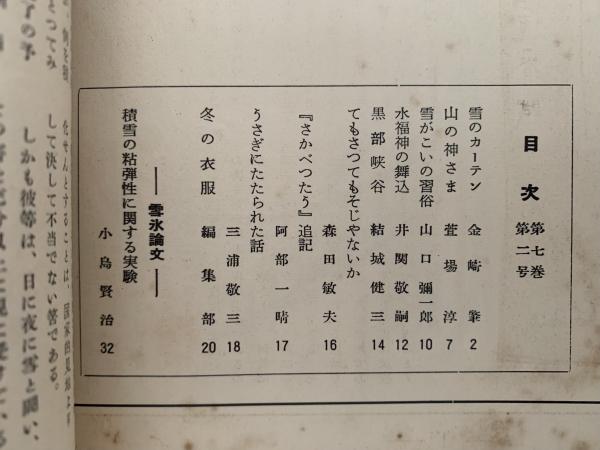 目次
第七巻
第二号
雪のカーテン 金崎肇 2
山の神さま 萱場淳 7
雪がこいの習俗 山口彌一郎 10
水福神の舞込 井関敬嗣 12
黒部峡谷 結城健三 14
てもさつてもそじやないか
森田敏夫 16
『さかべつたう』追記
阿部一晴 17
うさぎにたたられた話
三浦敬三 18
冬の衣服 編集部 20
―― 雪氷論文 ――
積雪の粘弾性に関する実験
小島賢治 32
化せんとすることは、国家的見地より
して決して不当でない筈である。
しかも彼等は、日に夜に雪と闘い、